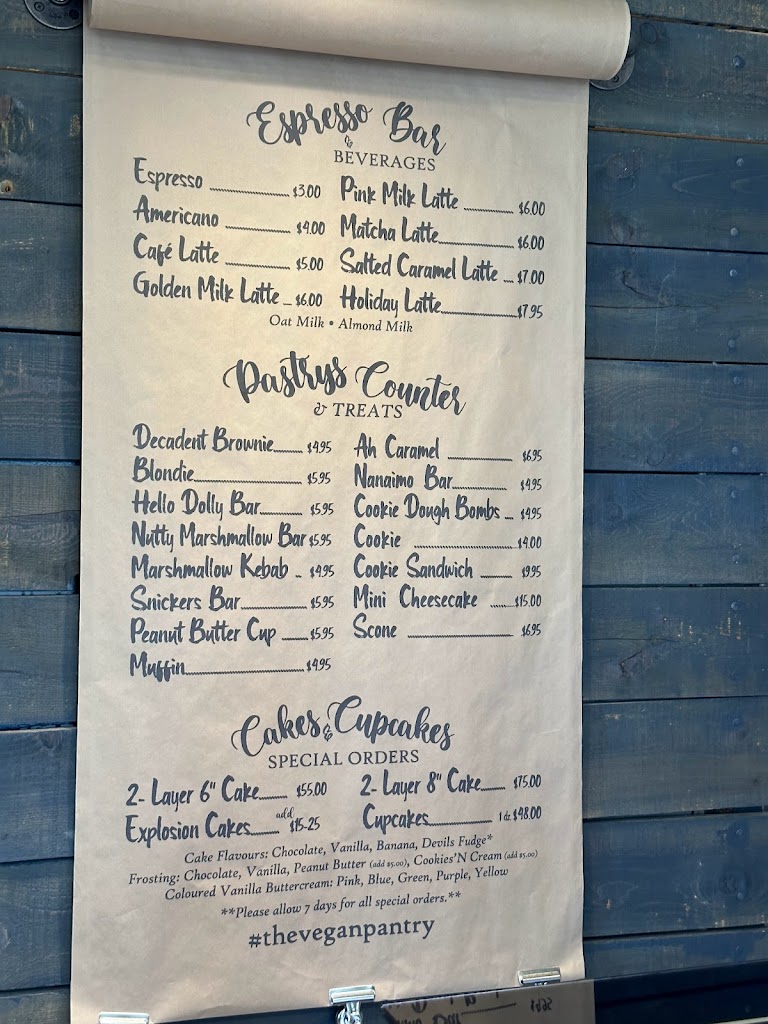 Espresso Bar
& BEVERAGES
Espresso $3.00
Americano $4.00
Café Latte $5.00
Golden Milk Latte $6.00
Pink Milk Latte $6.00
Matcha Latte $6.00
Salted Caramel Latte $7.00
Holiday Latte $7.95
Oat Milk • Almond Milk
Pastrys Counter
& TREATS
Decadent Brownie $4.95
Blondie $5.95
Hello Dolly Bar $5.95
Nutty Marshmallow Bar $5.95
Marshmallow Kebab $4.95
Snickers Bar $5.95
Peanut Butter Cup $5.95
Muffin $4.95
Ah Caramel $6.95
Nanaimo Bar $4.95
Cookie Dough Bombs $4.95
Cookie $4.00
Cookie Sandwich $9.95
Mini Cheesecake $15.00
Scone $6.95
Cakes & Cupcakes
SPECIAL ORDERS
2- Layer 6" Cake $55.00
Explosion Cakes add $15-25
2- Layer 8" Cake $75.00
Cupcakes 1 dz $48.00
Cake Flavours: Chocolate, Vanilla, Banana, Devils Fudge*
Frosting: Chocolate, Vanilla, Peanut Butter (add $5.00), Cookies'N Cream (add $5.00)
Coloured Vanilla Buttercream: Pink, Blue, Green, Purple, Yellow
**Please allow 7 days for all special orders.**
#theveganpantry